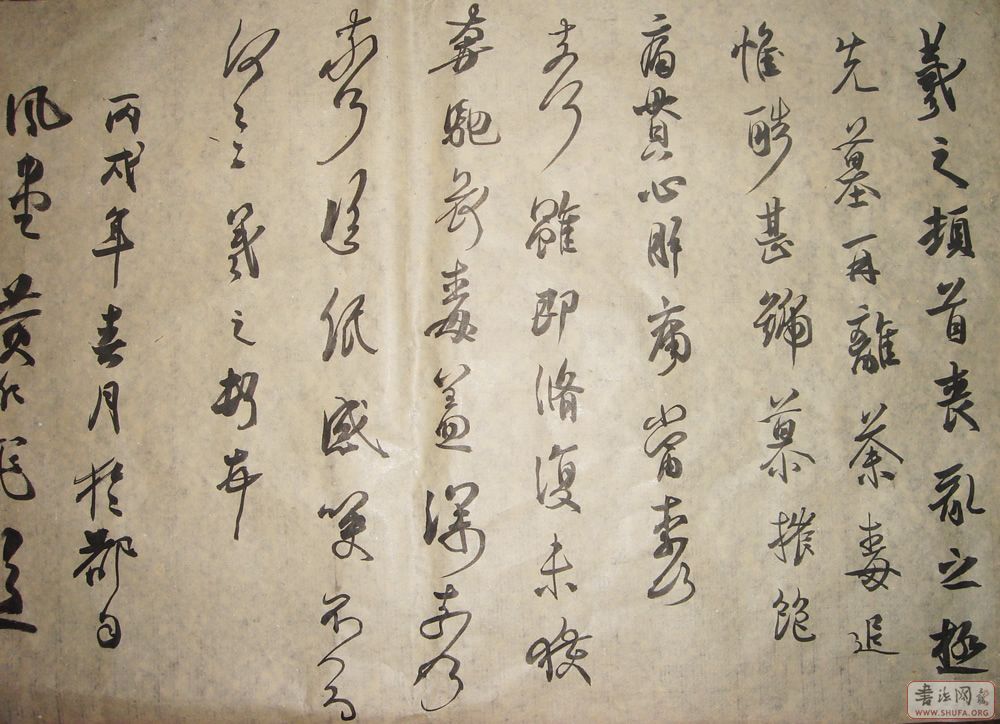 羲之頓首喪亂之極
先墓再離荼毒追
惟酷甚號慕摧絕
痛貫心肝痛當奈何
奈何雖即脩復未獲
奔馳哀毒益深奈何
奈何臨紙感哽不知
何言羲之頓首
丙戌年春月於都
風堂黃
书法网
WWW.SHUFA.ORG